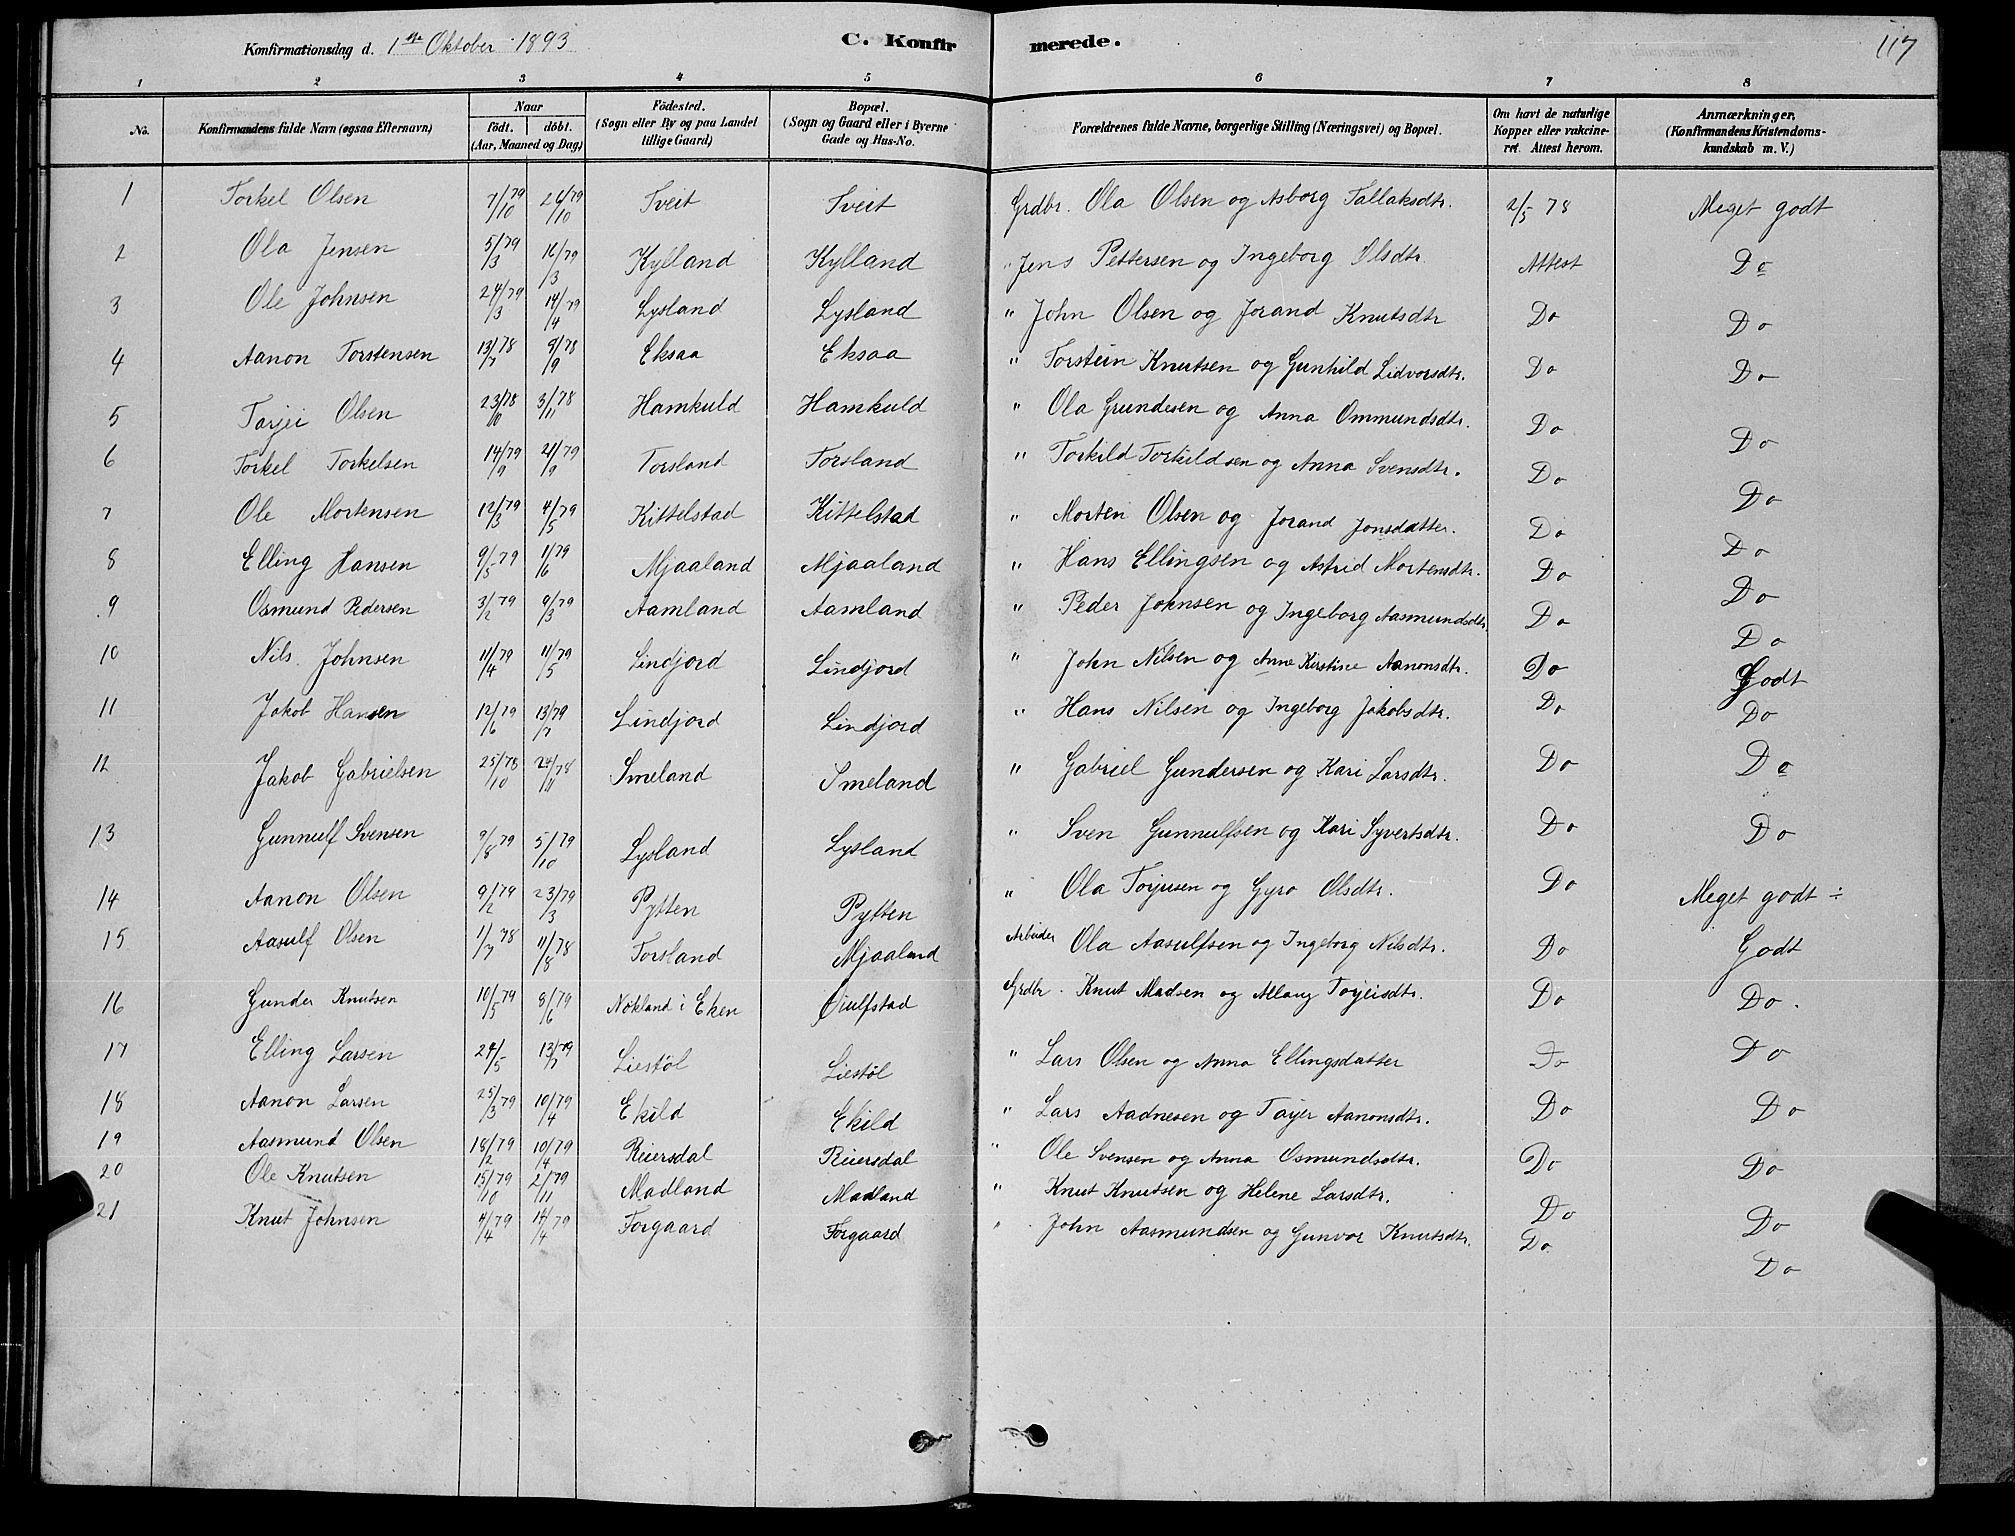 Konfirmationsdag d. 1ste Oktober 1893 C. Konfirmerede. 117
1 2 3 4 5 6 7 8
No. Konfirmandens fulde Navn (ogsaa Efternavn) Naar født. døbt. (Aar, Maaned og Dag) Födested. (Sogn eller By og paa Landet tillige Gaard) Bopæl. (Sogn og Gaard eller i Byerne Gade og Hus-No. Forældrenes fulde Navne, borgerlige Stilling (Næringsvei) og Bopæl. Om havt de naturlige Kopper eller vakcineret. Attest herom. Anmærkninger. (Konfirmandens Kristendomskundskab m. V.)
1 Torkel Olsen 7/10 79 26/10 79 Tveit Tveit Grdbr. Ola Olsen og Asborg Tallaksdtr. 2/5 78 Meget godt
2 Ola Jensen 5/3 79 16/3 79 Kylland Kylland " Jens Pettersen og Ingeborg Olsdtr Attest Do
3 Ole Johnsen 24/3 79 14/4 79 Lysland Lysland " John Olsen og Jorand Knutsdtr Do Do
4 Aanon Torstensen 13/7 78 9/9 78 Eksaa Eksaa " Torstein Knutsen og Gunhild Lidvorsdtr. Do Do
5 Tarjei Olsen 23/10 78 3/11 78 Hamkuld Hamkuld " Ola Grundesen og Anna Ommundsdtr. Do Do
6 Torkel Torkelsen 14/9 79 21/9 79 Torsland Torsland " Torkild Torkildsen og Anna Svensdtr. Do Do
7 Ole Mortensen 12/3 79 4/5 79 Kittelstad Kittelstad " Morten Olsen og Jorand Jonsdatter. Do Do
8 Elling Hansen 9/5 79 1/6 79 Mjaaland Mjaaland " Hans Ellingsen og Astrid Mortensdtr. Do Do
9 Osmund Pedersen 3/2 79 9/3 79 Aamland Aamland " Peder Johnsen og Ingeborg Aasmundsdtr. Do Do
10 Nils Johnsen 11/4 79 11/5 79 Lindjord Lindjord " John Nilsen og Anne Kirstine Aanonsdtr. Do Godt
11 Jakob Hansen 12/6 79 13/7 79 Lindjord Lindjord " Hans Nilsen og Ingeborg Jakobsdtr. Do Do
12 Jakob Gabrielsen 25/10 78 24/11 78 Smeland Smeland " Gabriel Gundersen og Kari Larsdtr. Do Do
13 Gunnulf Svensen 9/8 79 5/10 79 Lysland Lysland " Sven Gunnulfsen og Kari Syvertsdtr. Do Do
14 Aanon Olsen 9/2 79 23/3 79 Pytten Pytten " Ola Torjusen og Gyro Olsdtr. Do Meget godt ÷
15 Aasulf Olsen 1/7 78 11/8 78 Torsland Mjaaland Arbeider Ola Aasulfsen og Ingeborg Nilsdtr. Do Godt
16 Gunder Knutsen 10/5 79 8/6 79 Nökland i Eken Øiulfstad Grdbr. Knut Madsen og Allaug Torjeisdtr. Do Do.
17 Elling Larsen 24/5 13/7 79 Liestöl Liestöl " Lars Olsen og Anna Ellingsdatter Do Do
18 Aanon Larsen 25/3 79 10/4 79 Ekild Ekild " Lars Aadnesen og Tarjer Aanonsdtr. Do Do
19 Aasmund Olsen 18/2 79 10/4 79 Reiersdal Reiersdal " Ole Svensen og Anna Osmundsdtr. Do Do
20 Ole Knutsen 15/10 79 2/11 79 Madland Madland " Knut Knutsen og Helene Larsdtr. Do Do
21 Knut Johnsen 4/4 79 14/4 79 Forgaard Forgaard " John Aasmundsen og Gunvor Knutsdtr. Do Do